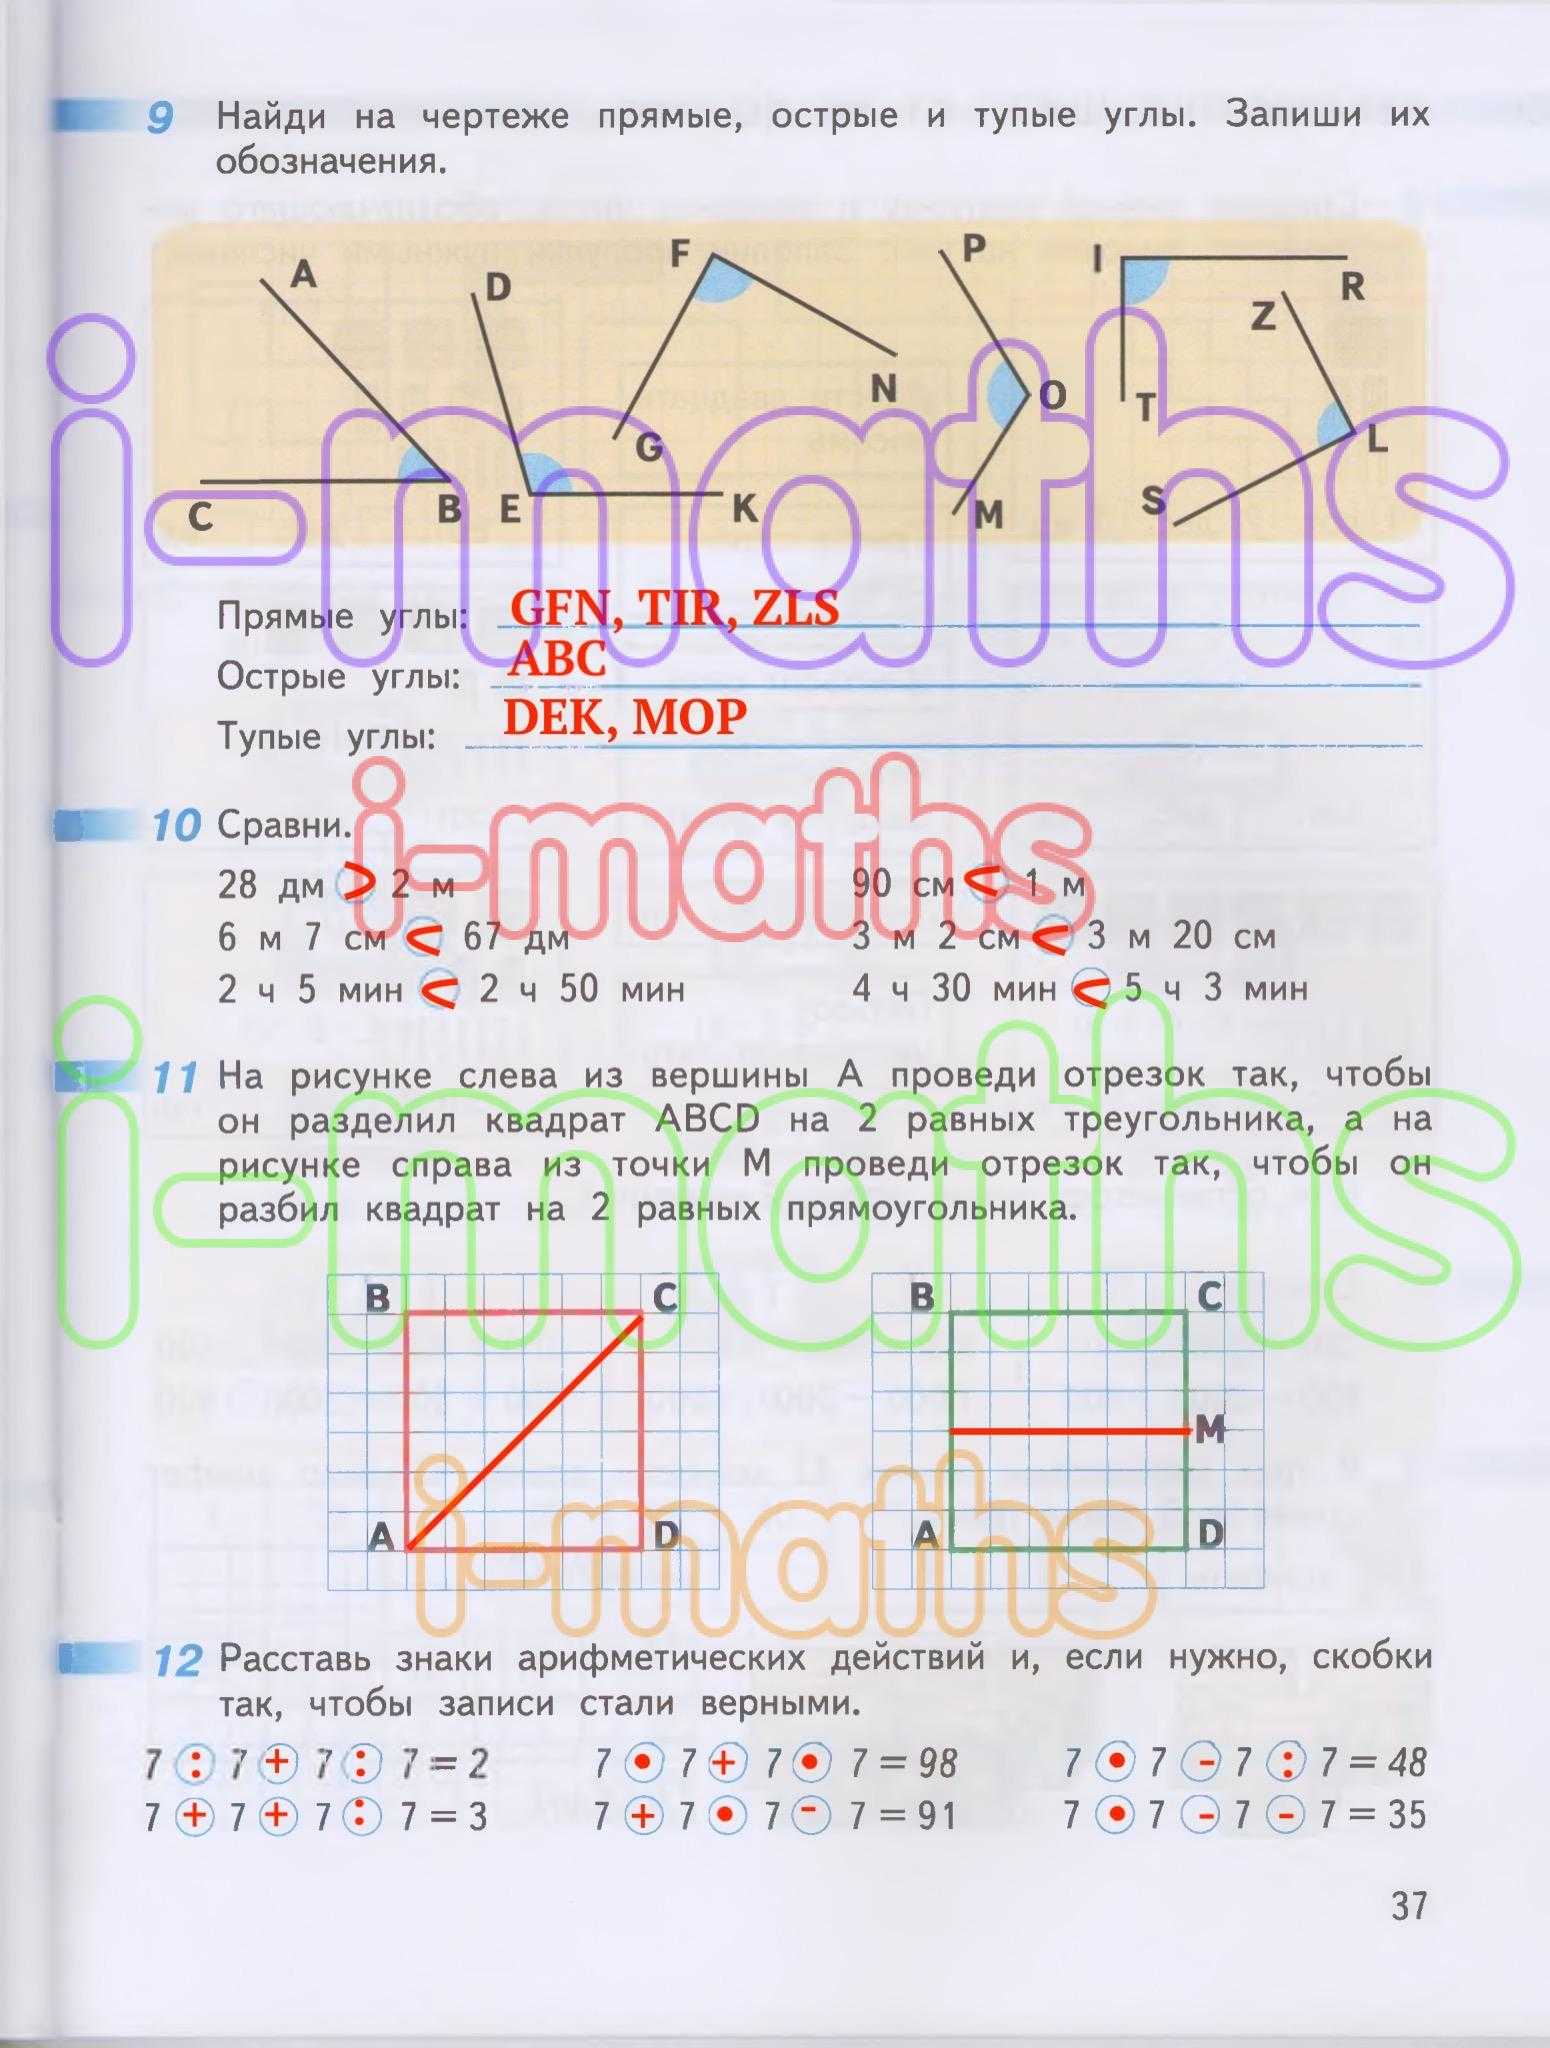 9 Найди на чертеже прямые, острые и тупые углы. Запиши их
обозначения.
A D F N G P O M I R T Z L S
C B E K
Прямые углы: GFN, TIR, ZLS
Острые углы: ABC
Тупые углы: DEK, MOP
i-maths
10 Сравни.
28 дм > 2 м 90 см < 1 м
6 м 7 см < 67 дм 3 м 2 см < 3 м 20 см
2 ч 5 мин < 2 ч 50 мин 4 ч 30 мин < 5 ч 3 мин
i-maths
11 На рисунке слева из вершины А проведи отрезок так, чтобы
он разделил квадрат ABCD на 2 равных треугольника, а на
рисунке справа из точки М проведи отрезок так, чтобы он
разбил квадрат на 2 равных прямоугольника.
i-maths
B C B C
M
A D A D
i-maths
12 Расставь знаки арифметических действий и, если нужно, скобки
так, чтобы записи стали верными.
7 : 7 + 7 : 7 = 2 7 • 7 + 7 • 7 = 98 7 • 7 - 7 : 7 = 48
7 + 7 + 7 : 7 = 3 7 + 7 • 7 - 7 = 91 7 • 7 - 7 - 7 = 35
37